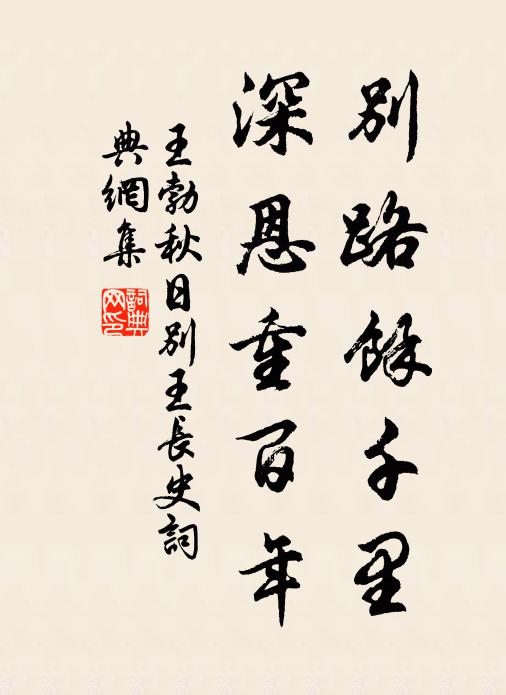 别路餘千里
深恩重百年
王勃秋日别王長史詞
典網集
詞典
网印